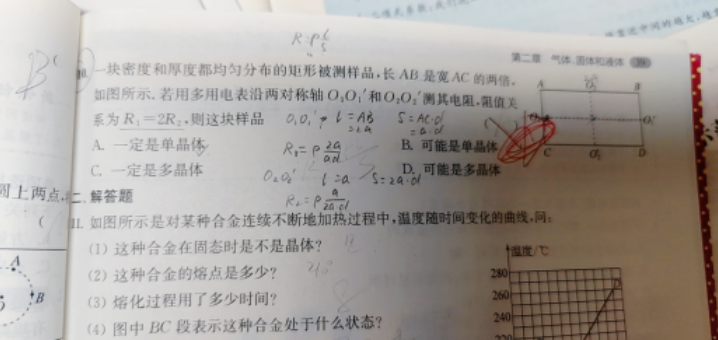 R=ρl/s
第二章 气体、固体和液体
10. 一块密度和厚度都均匀分布的矩形被测样品,长 AB 是宽 AC 的两倍,
如图所示.若用多用电表沿两对称轴 O₁O₁′和 O₂O₂′测其电阻,阻值关
系为 R₁=2R₂,则这块样品
O₁O₁′ l=AB S=AC·d
=2a =a·d
A. 一定是单晶体
B. 可能是单晶体
R₁=ρ 2a/ad
C. 一定是多晶体
D. 可能是多晶体
O₂O₂′ l=a S=2a·d
R₂=ρ a/2a·d
A
B
C
D
圆上两点
二、解答题
11. 如图所示是对某种合金连续不断地加热过程中,温度随时间变化的曲线,问:
(1) 这种合金在固态时是不是晶体?
(2) 这种合金的熔点是多少?
(3) 熔化过程用了多少时间?
(4) 图中 BC 段表示这种合金处于什么状态?
温度/℃
280
260
240
220
D
A
B